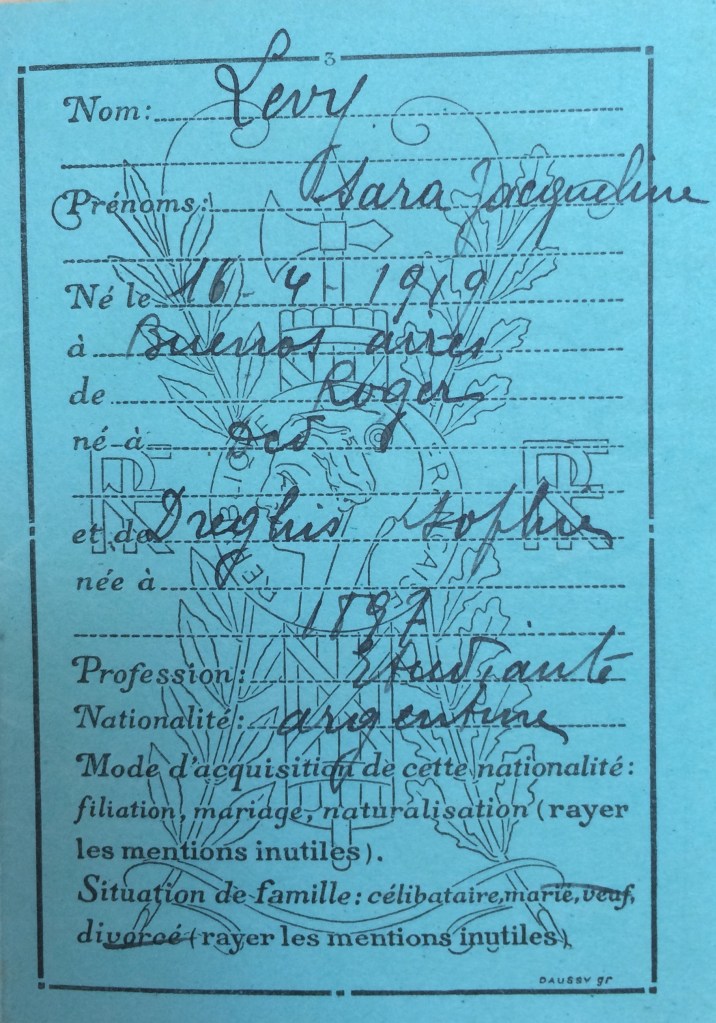 3
Nom: Levy
Prénoms: Sara Jacqueline
Né le 16 - 4 - 1919
à Buenos aires
de Roger
né à Dcd
et de Dreghis Sophie
née à
1897
Profession: Etudiante
Nationalité: argentine
Mode d'acquisition de cette nationalité:
filiation, mariage, naturalisation (rayer
les mentions inutiles).
Situation de famille: célibataire, marié, veuf,
divorcé (rayer les mentions inutiles).
RF
RF
RÉPUBLIQUE FRANÇAISE
DAUSSY gr